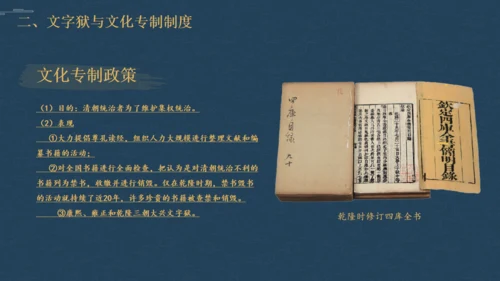 二、文字狱与文化专制制度
文化专制政策
（1）目的：清朝统治者为了维护集权统治。
（2）表现
①大力提倡尊孔读经、组织人力大规模进行整理文献和编
纂书籍的活动；
②对全国书籍进行全面检查，把认为是对清朝统治不利的
书籍列为禁书，收缴并进行销毁。仅在乾隆时期，禁书毁书
的活动就持续了近20年，许多珍贵的书籍被查禁和销毁。
③康熙、雍正和乾隆三朝大兴文字狱。
欽定四庫全書簡明目錄
乾隆时修订四库全书